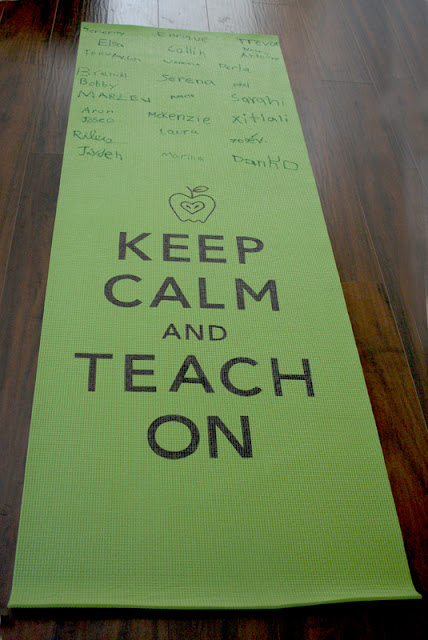 Enrique TREVOR
Elsa Collin
Karla
Brandi Serena
Bobby
MARLEN Sarahi
Aron McKenzie Xitlali
Joseo
Laura
Riley
Jayden Marina Dank'D
KEEP
CALM
AND
TEACH
ON